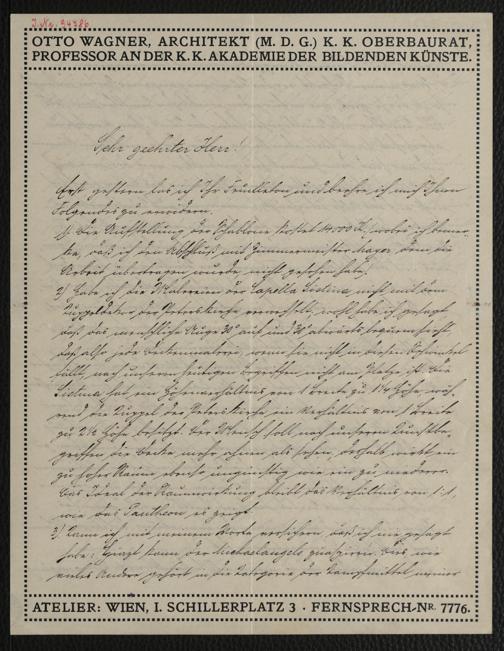 J. Nr. 94386
OTTO WAGNER, ARCHITEKT (M. D. G.) K. K. OBERBAURAT,
PROFESSOR AN DER K. K. AKADEMIE DER BILDENDEN KÜNSTE.
Sehr geehrter Herr!
Erst gestern las ich Ihr Feuilleton und beehre ich mich Ihnen
Folgendes zu erwidern.
1) Die Aufstellung der Schablone kostet 14.000 K, wobei ich bemer-
ke, daß ich den Abschluß mit Zimmermeister Mayer dem die
Arbeit übertragen wurde, nicht gesehen habe.
2) Habe ich die Malereien der Capella Sistina nicht mit dem
der Peterskirche verwechselt, wohl habe ich gesagt
daß das menschliche Auge auf und abwärts bequem sieht
daß also jede Deckenmalerei, wenn sie nicht in diesen Sehwinkel
fällt, nach unseren heutigen Begriffen nicht am Platze ist. Die
Sistina hat ein Höhenverhältnis von 1 Breite zu 1¼ Höhe, wäh-
rend die Kuppel der Peterskirche ein Verhältnis von 1 Breite
zu 2½ Höhe besitzt. Der Mensch soll nach unseren Kunstbe-
griffen die Decke mehr ahnen als sehen, deshalb wirkt ein
zu hoher Raum ebenso ungünstig wie ein zu niederer.
Das Ideal der Raumwirkung bleibt das Verhältnis von 1:1,
wie das Pantheon es zeigt.
3) Kann ich mit meinem Worte versichern, daß ich nie gesagt
habe: kann der Michaelangelo Dies wie
vieles Andere gehört in die Kategorie der Kampfmittel meiner
ATELIER: WIEN, I. SCHILLERPLATZ 3 · FERNSPRECH-NR. 7776.